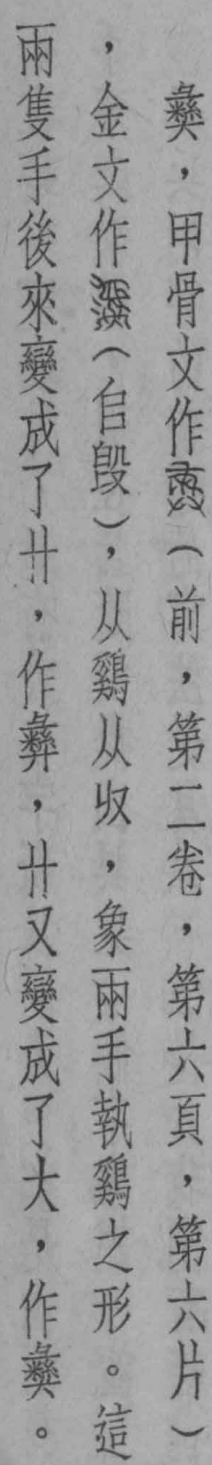 彝，甲骨文作（前，第二卷，第六頁，第六片）
，金文作（㠯𣪘），从鷄从収，象兩手執鷄之形。這
兩隻手後來變成了廾，作彝，廾又變成了大，作彜。